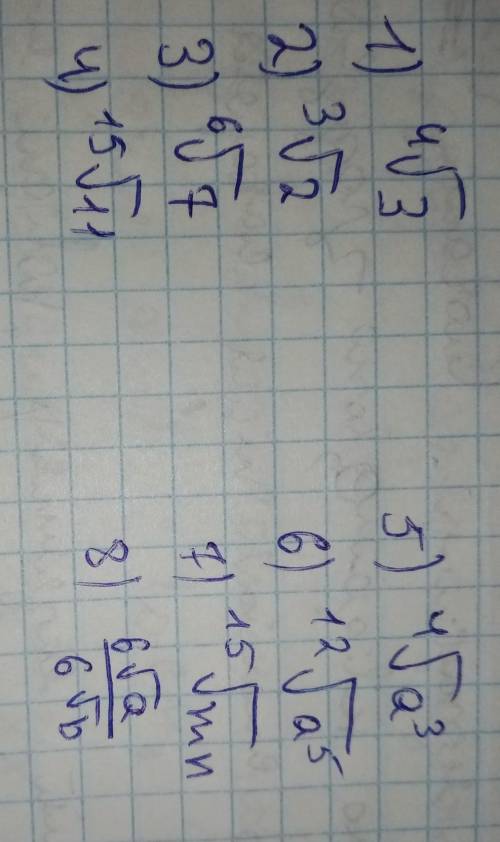 1) ⁴√3
2) ³√2
3) ⁶√7
4) ¹⁵√11
5) ⁴√a³
6) ¹²√a⁵
7) ¹⁵√mn
8) ⁶√a / ⁶√b